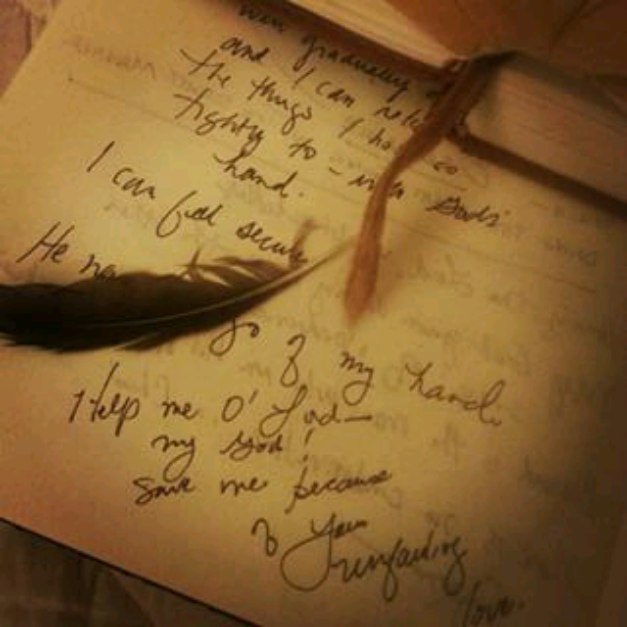 gradually
and I can
the things I
tightly to - into Gods'
hand.
I can feel secure
He
go of my hand.
Help me O' Lord—
my God!
Save me because
of Your
unfailing
love.